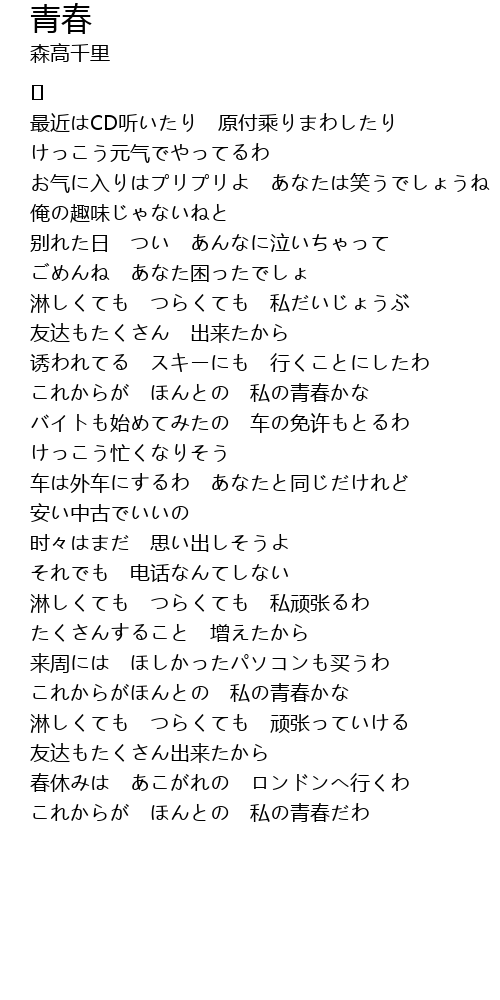 青春
森高千里
[]
最近はCD听いたり　原付乗りまわしたり
けっこう元気でやってるわ
お気に入りはプリプリよ　あなたは笑うでしょうね
俺の趣味じゃないねと
別れた日　つい　あんなに泣いちゃって
ごめんね　あなた困ったでしょ
淋しくても　つらくても　私だいじょうぶ
友达もたくさん　出来たから
诱われてる　スキーにも　行くことにしたわ
これからが　ほんとの　私の青春かな
バイトも始めてみたの　车の免许もとるわ
けっこう忙くなりそう
车は外车にするわ　あなたと同じだけれど
安い中古でいいの
时々はまだ　思い出しそうよ
それでも　电话なんてしない
淋しくても　つらくても　私顽张るわ
たくさんすること　增えたから
来周には　ほしかったパソコンも买うわ
これからがほんとの　私の青春かな
淋しくても　つらくても　顽张っていける
友达もたくさん出来たから
春休みは　あこがれの　ロンドンへ行くわ
これからが　ほんとの　私の青春だわ